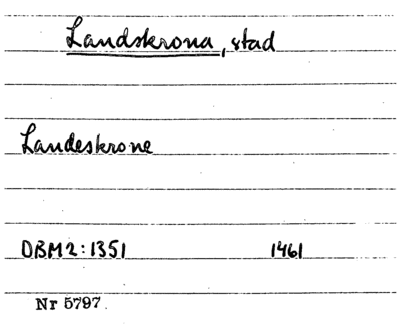 Landskrona, stad
Landeskrone
DBM2:1351 1461
Nr 5797.